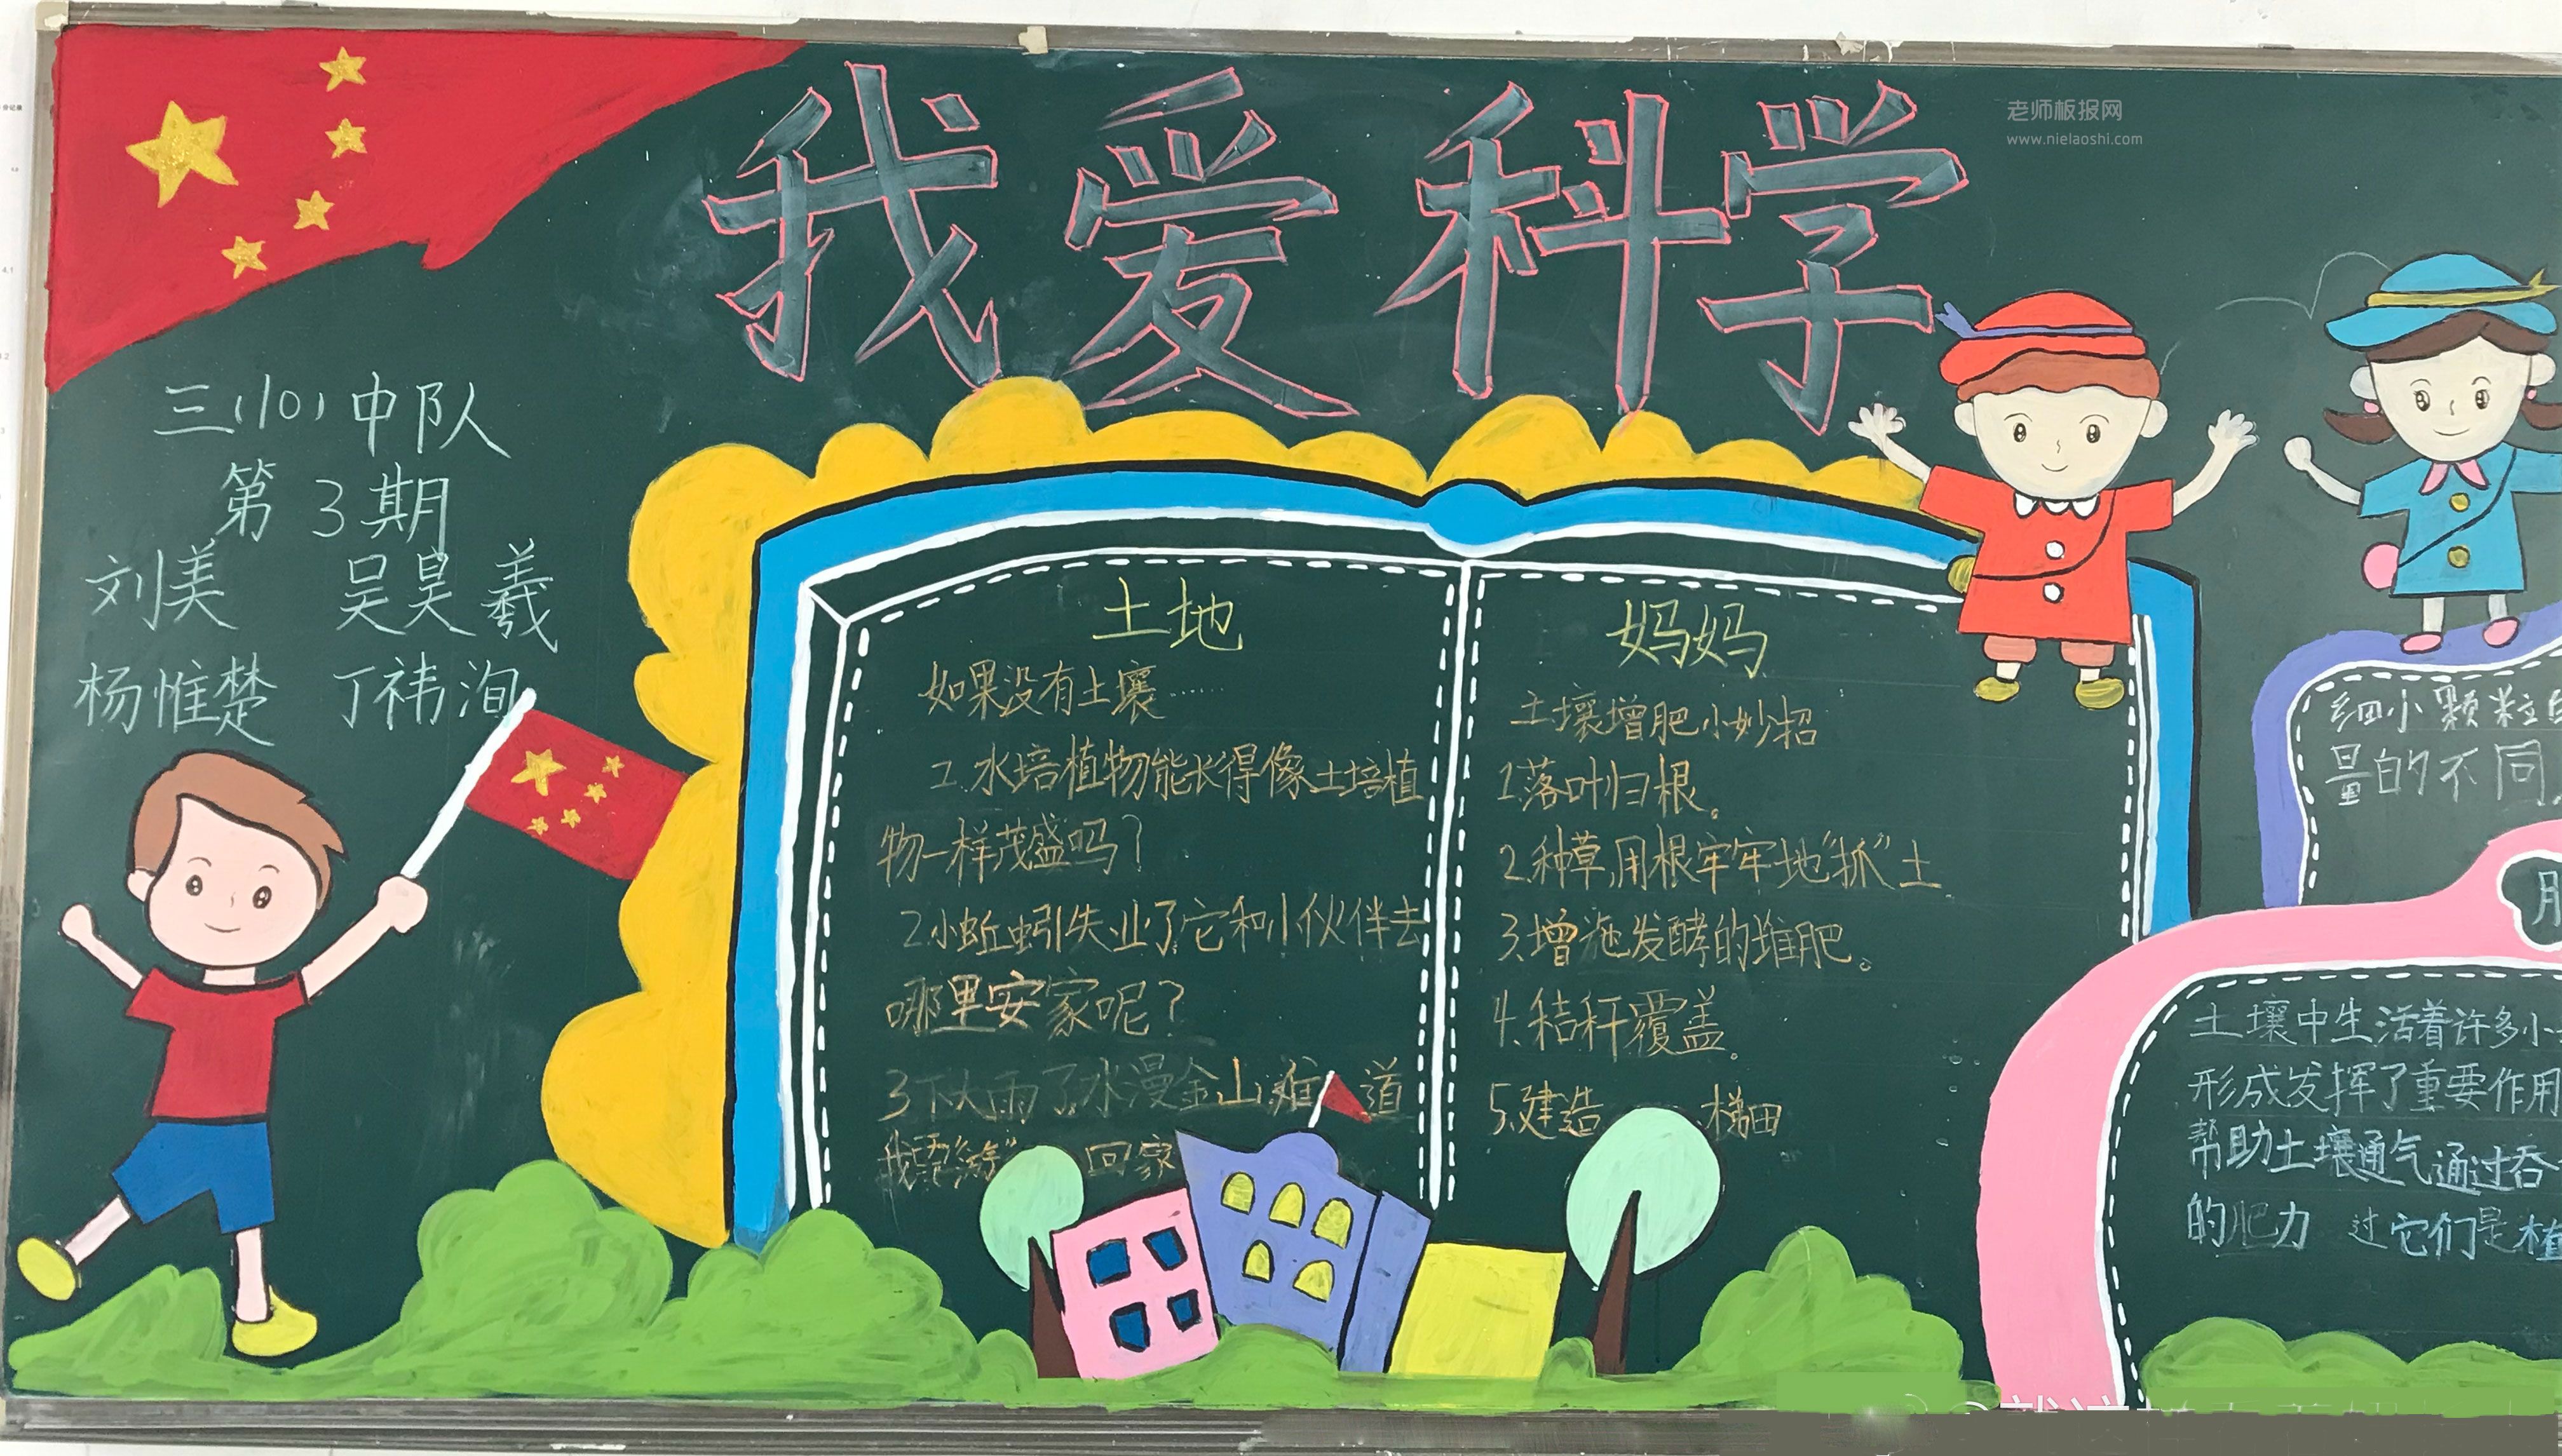 我爱科学
老师板报网
www.nielaoshi.com
三(10)中队
第3期
刘美 吴昊羲
杨惟楚 丁祎洵
土地
如果没有土壤……
1.水培植物能长得像土培植
物一样茂盛吗？
2.小蚯蚓失业了它和小伙伴去
哪里安家呢？
3下大雨了水漫金山,难道
我要“游”回家
妈妈
土壤增肥小妙招
1.落叶归根。
2.种草,用根牢牢地“抓”土
3.增施发酵的堆肥。
4.秸秆覆盖。
5.建造 梯田
细小颗粒
量的不同
土壤中生活着许多小
形成发挥了重要作用
帮助土壤通气通过吞
的肥力 过它们是植